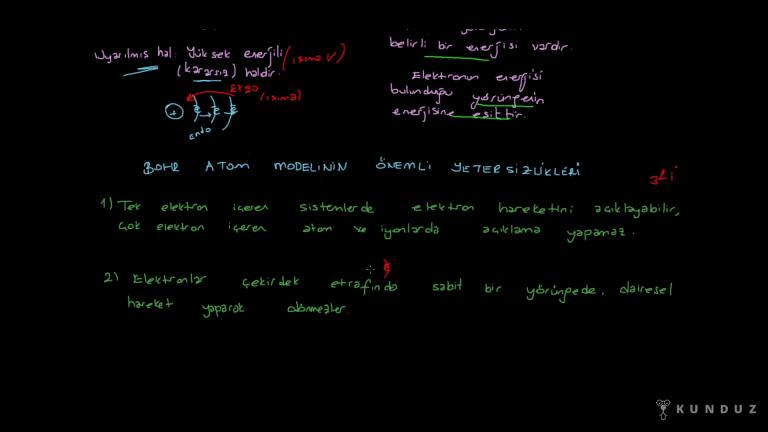 Uyarılmış hal. Yüksek enerjili (ısıma v)
(kararsız) haldir.
Ekzo (ısıma)
+ e e e
endo
belirli bir enerjisi vardır.
Elektronun enerjisi
bulunduğu yörüngenin
enerjisine eşittir.
BOHR ATOM MODELİNİN ÖNEMLİ YETERSİZLİKLERİ
3Li
1) Tek elektron içeren sistemlerde elektron hareketini açıklayabilir,
çok elektron içeren atom ve iyonlarda açıklama yapamaz.
2) Elektronlar çekirdek etrafında sabit bir yörüngede, dairesel
hareket yaparak dönmezler.
KUNDUZ